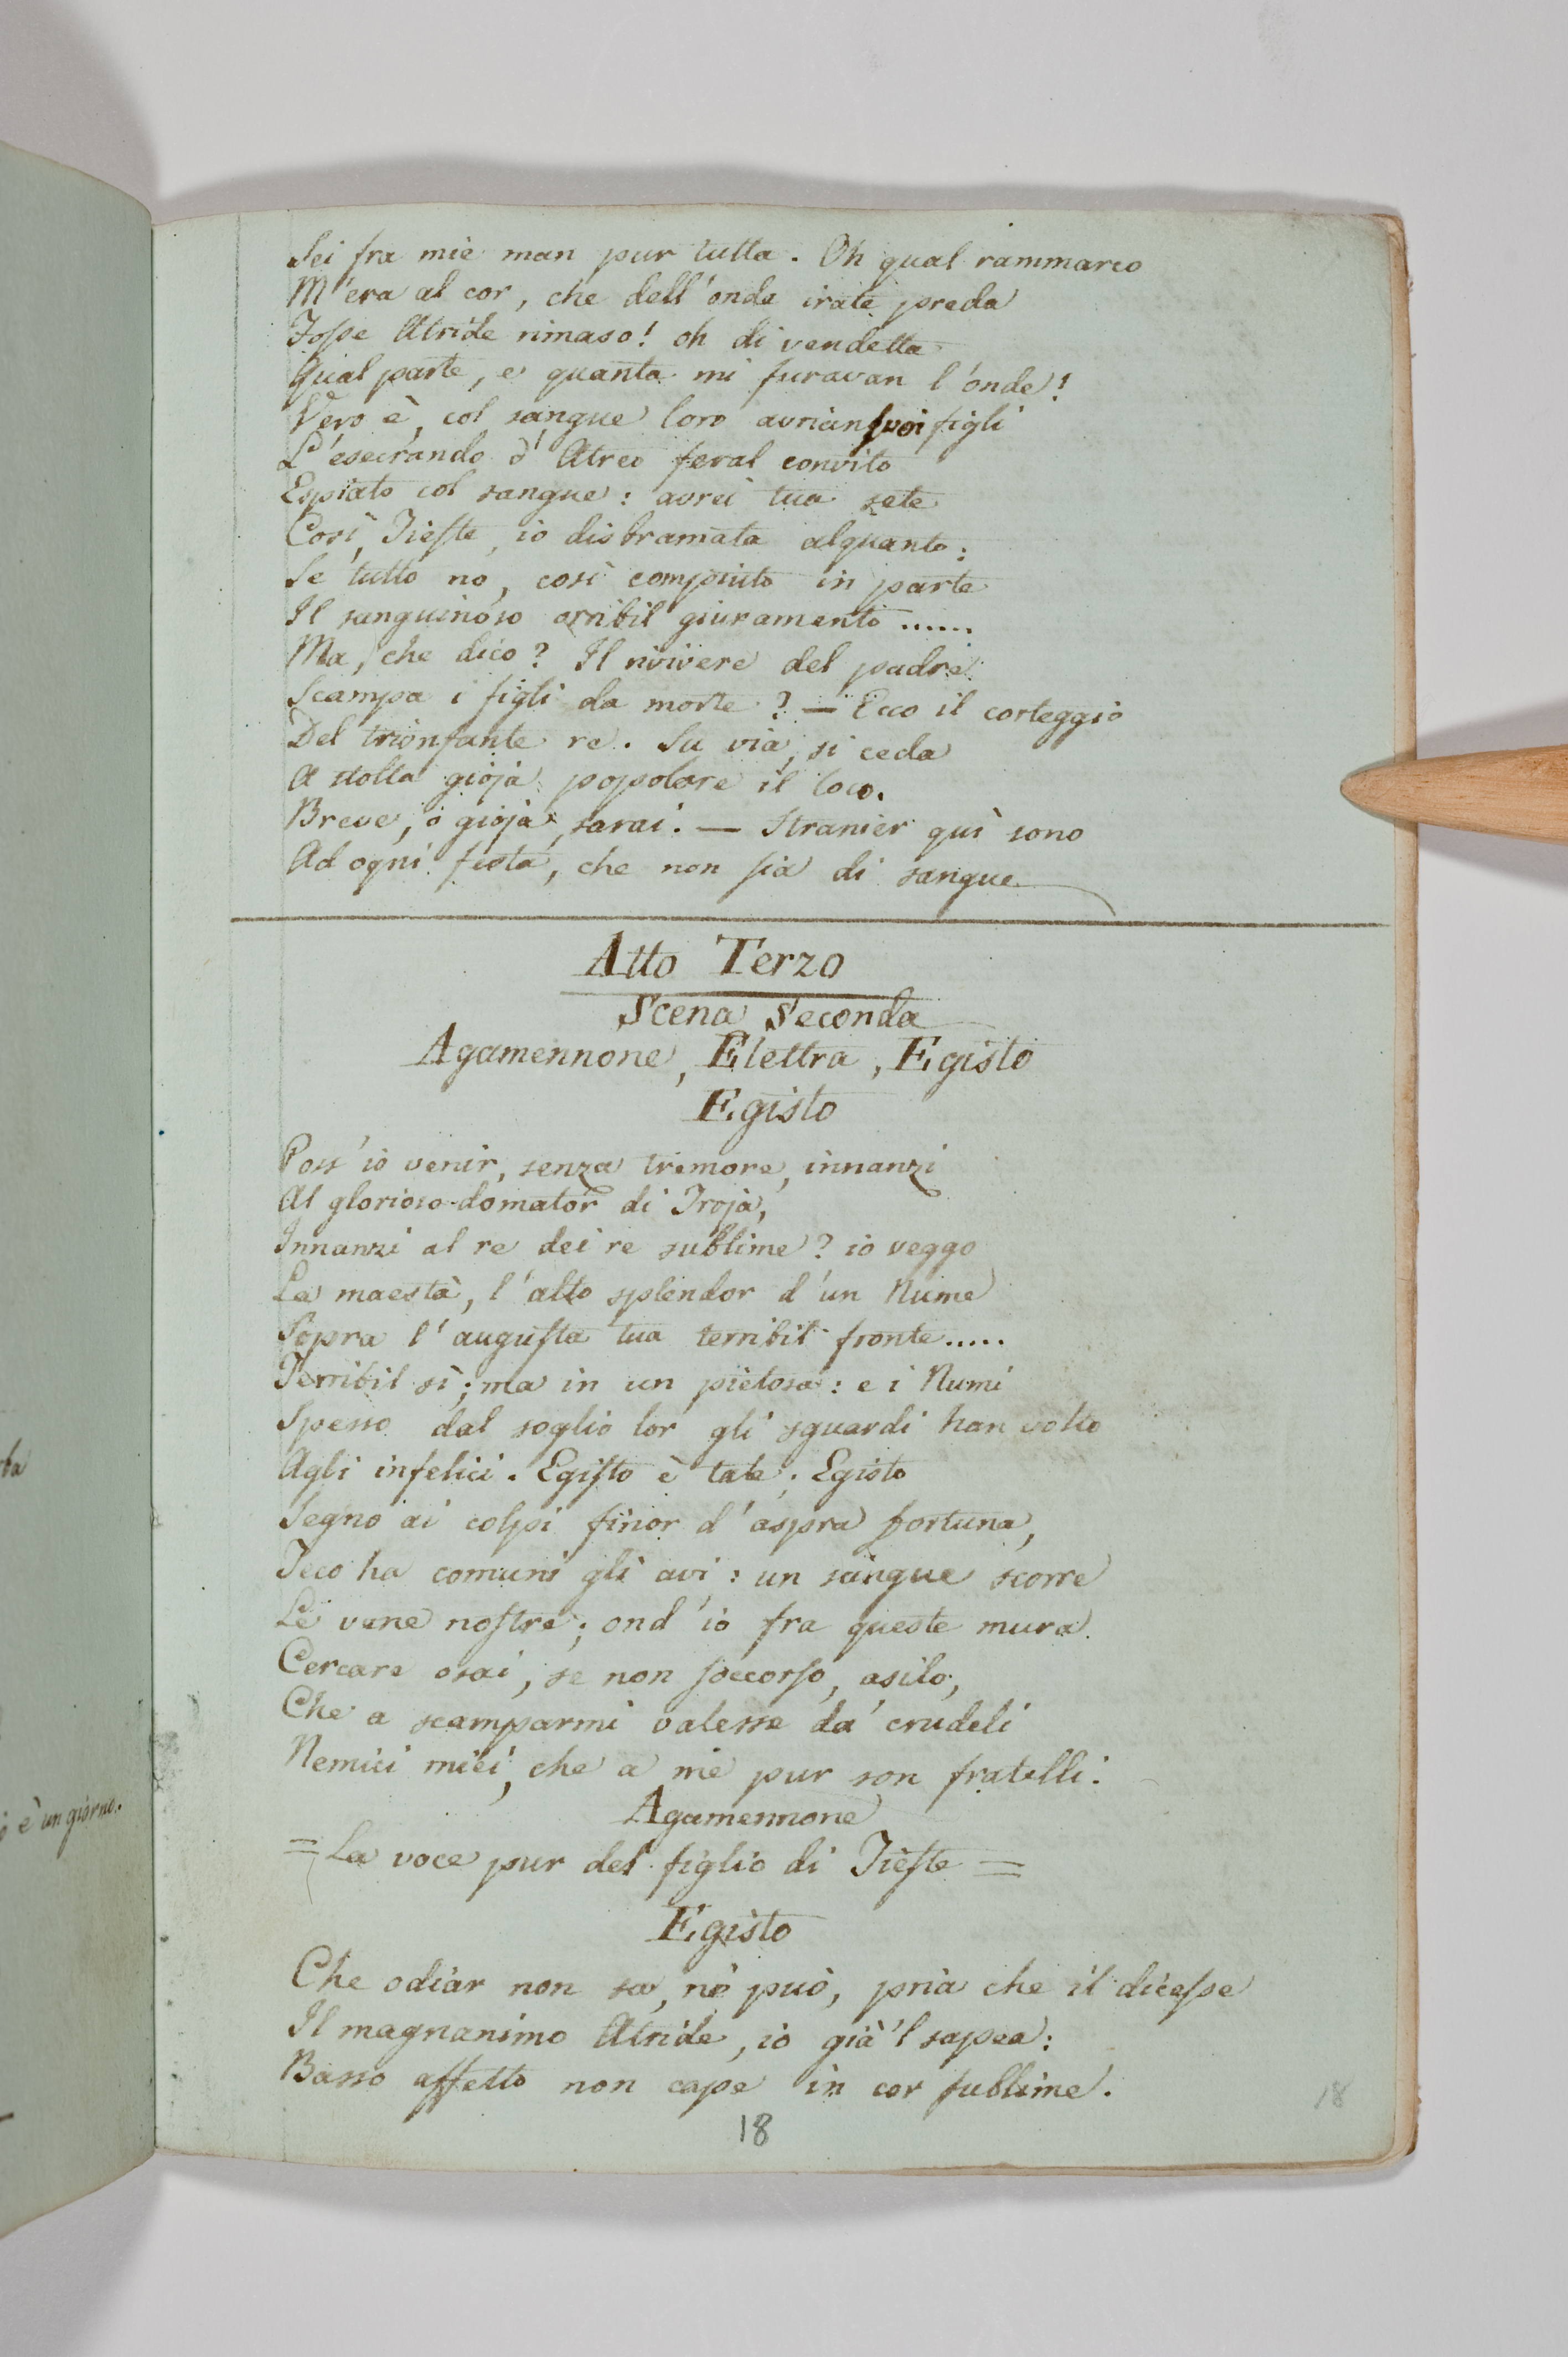 Sei fra mie man pur tutta. Oh qual rammarco
M'era al cor, che dell'onde irate preda
Fosse Atride rimaso! oh di vendetta
Qual parte, e quanta mi furavan l'onde!
Vero è, col sangue loro avrian suoi figli
L'esecrando d'Atreo feral convito
Espiato col sangue: avrei tua sete
Così, Tieste, io disbramata alquanto:
Se tutto no, così compiuto in parte
Il sanguinoso orribil giuramento ......
Ma, che dico? Il rivivere del padre
Scampa i figli da morte? — Ecco il corteggio
Del trionfante re. Su via, si ceda
A stolta gioja popolare il loco.
Breve, o gioja, sarai. — Stranier quì sono
Ad ogni festa, che non sia di sangue
Atto Terzo
Scena Seconda
Agamennone, Elettra, Egisto
Egisto
Poss'io venir, senza tremore, innanzi
Al glorioso domator di Troja,
Innanzi al re dei re sublime? io veggo
La maestà, l'alto splendor d'un Nume
Sopra l'augusta tua terribil fronte.....
Terribil sì; ma in un pietosa: e i Numi
Spesso dal soglio lor gli sguardi han volto
Agli infelici. Egisto è tale; Egisto
Segno ai colpi finor d'aspra fortuna,
Teco ha comuni gli avi: un sangue scorre
Le vene nostre; ond'io fra queste mura
Cercare osai, se non soccorso, asilo,
Che a scamparmi valesse da' crudeli
Nemici miei, che a me pur son fratelli.
Agamennone
= La voce pur del figlio di Tieste =
Egisto
Che odiar non sa, nè può, pria che il dicesse
Il magnanimo Atride, io già 'l sapea:
Basso affetto non cape in cor sublime.
18
18
è un giorno.